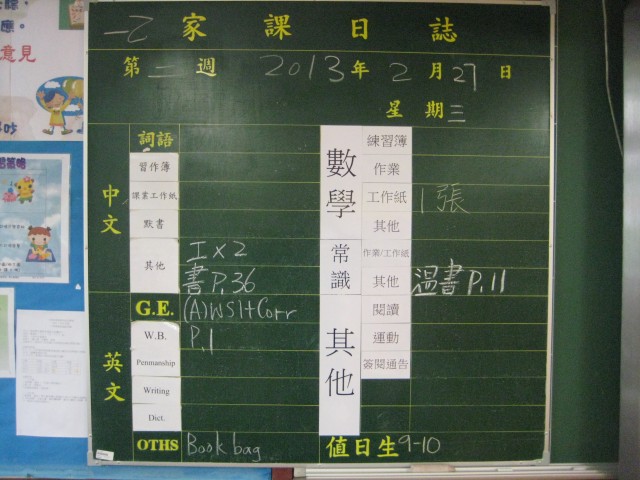 一乙 家課日誌
第二週 2013年2月27日
星期三
中文
詞語
習作簿
課業工作紙
默書
其他 工x2
書P.36
英文
G.E. (A)WS1+Corr
W.B. P.1
Penmanship
Writing
Dict.
OTHS Book bag
數學
練習簿
作業
工作紙 1張
其他
常識
作業/工作紙
其他 溫書P.11
其他
閱讀
運動
簽閱通告
值日生 9-10
意見